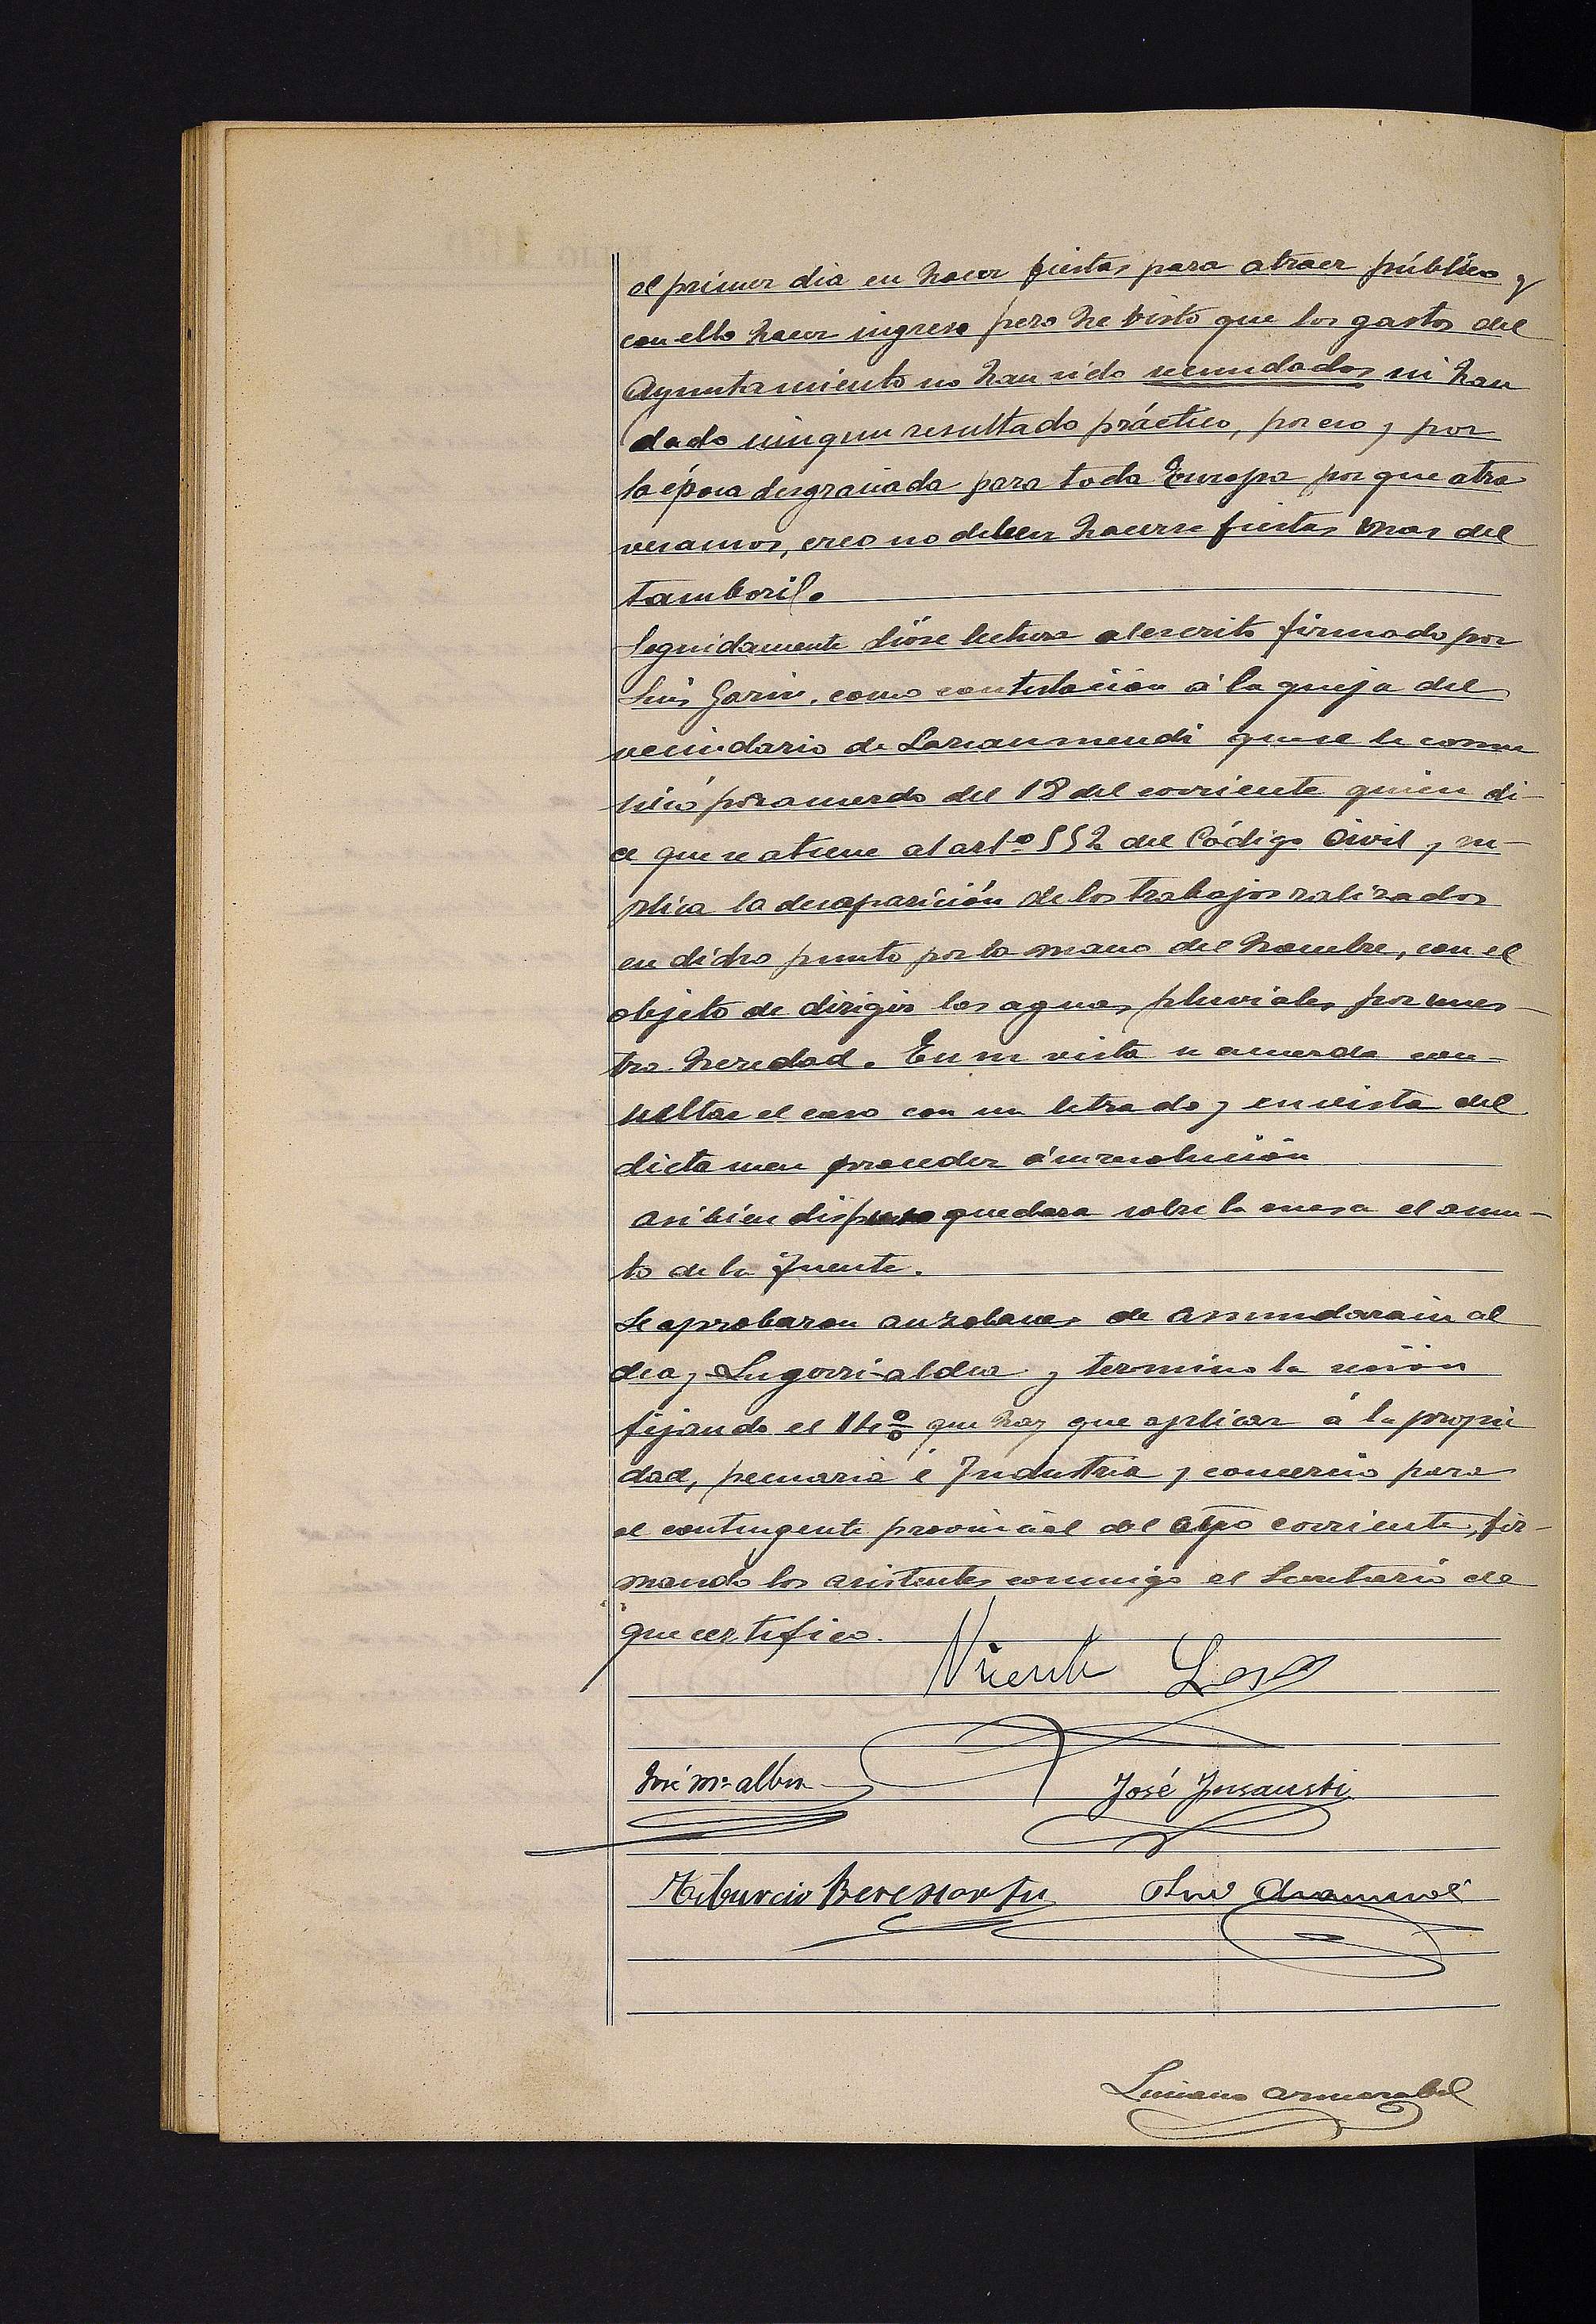 el primer dia en hacer fiestas para atraer público y
con ello hacer ingreso pero he visto que los gastos del
Ayuntamiento no han sido secundados ni han
dado ningun resultado práctico, por eso y por
la época desgraciada para toda Europa porque atra
vesamos, creo no deben hacerse fiestas mas del
tamboril.
Seguidamente dióse lectura al escrito firmado por
Luis Garin, como contestación á la queja del
vecindario de Larzanmendi que se le comu
nicó por acuerdo del 18 del corriente quien di-
ce que se atiene al artº 552 del Código Civil, su-
plica la desaparición de los trabajos ralizados
en dicho punto por la mano del hombre, con el
objeto de dirigir las aguas pluviales por nues-
tra heredad. En su vista se acuerda con-
sultar el caso con un letrado y en vista del
dictamen proceder á su resolución
Asi bien dispuso quedara sobre la mesa el asun-
to de la fuente.
Se aprobaron auzolanes de Amundarain al
dea y Lugorri-aldea y termino la sesión
fijando el % que hay que aplicar á la propie
dad, pecuaria é Industria y comercio para
el contingente provincial del año corriente, fir-
mando los asistentes conmigo el Secretario de
que certifico.
Vicente Lasa
José Mª Albin
José Insausti
Tiburcio Beresiartu
Luciano Armorabal